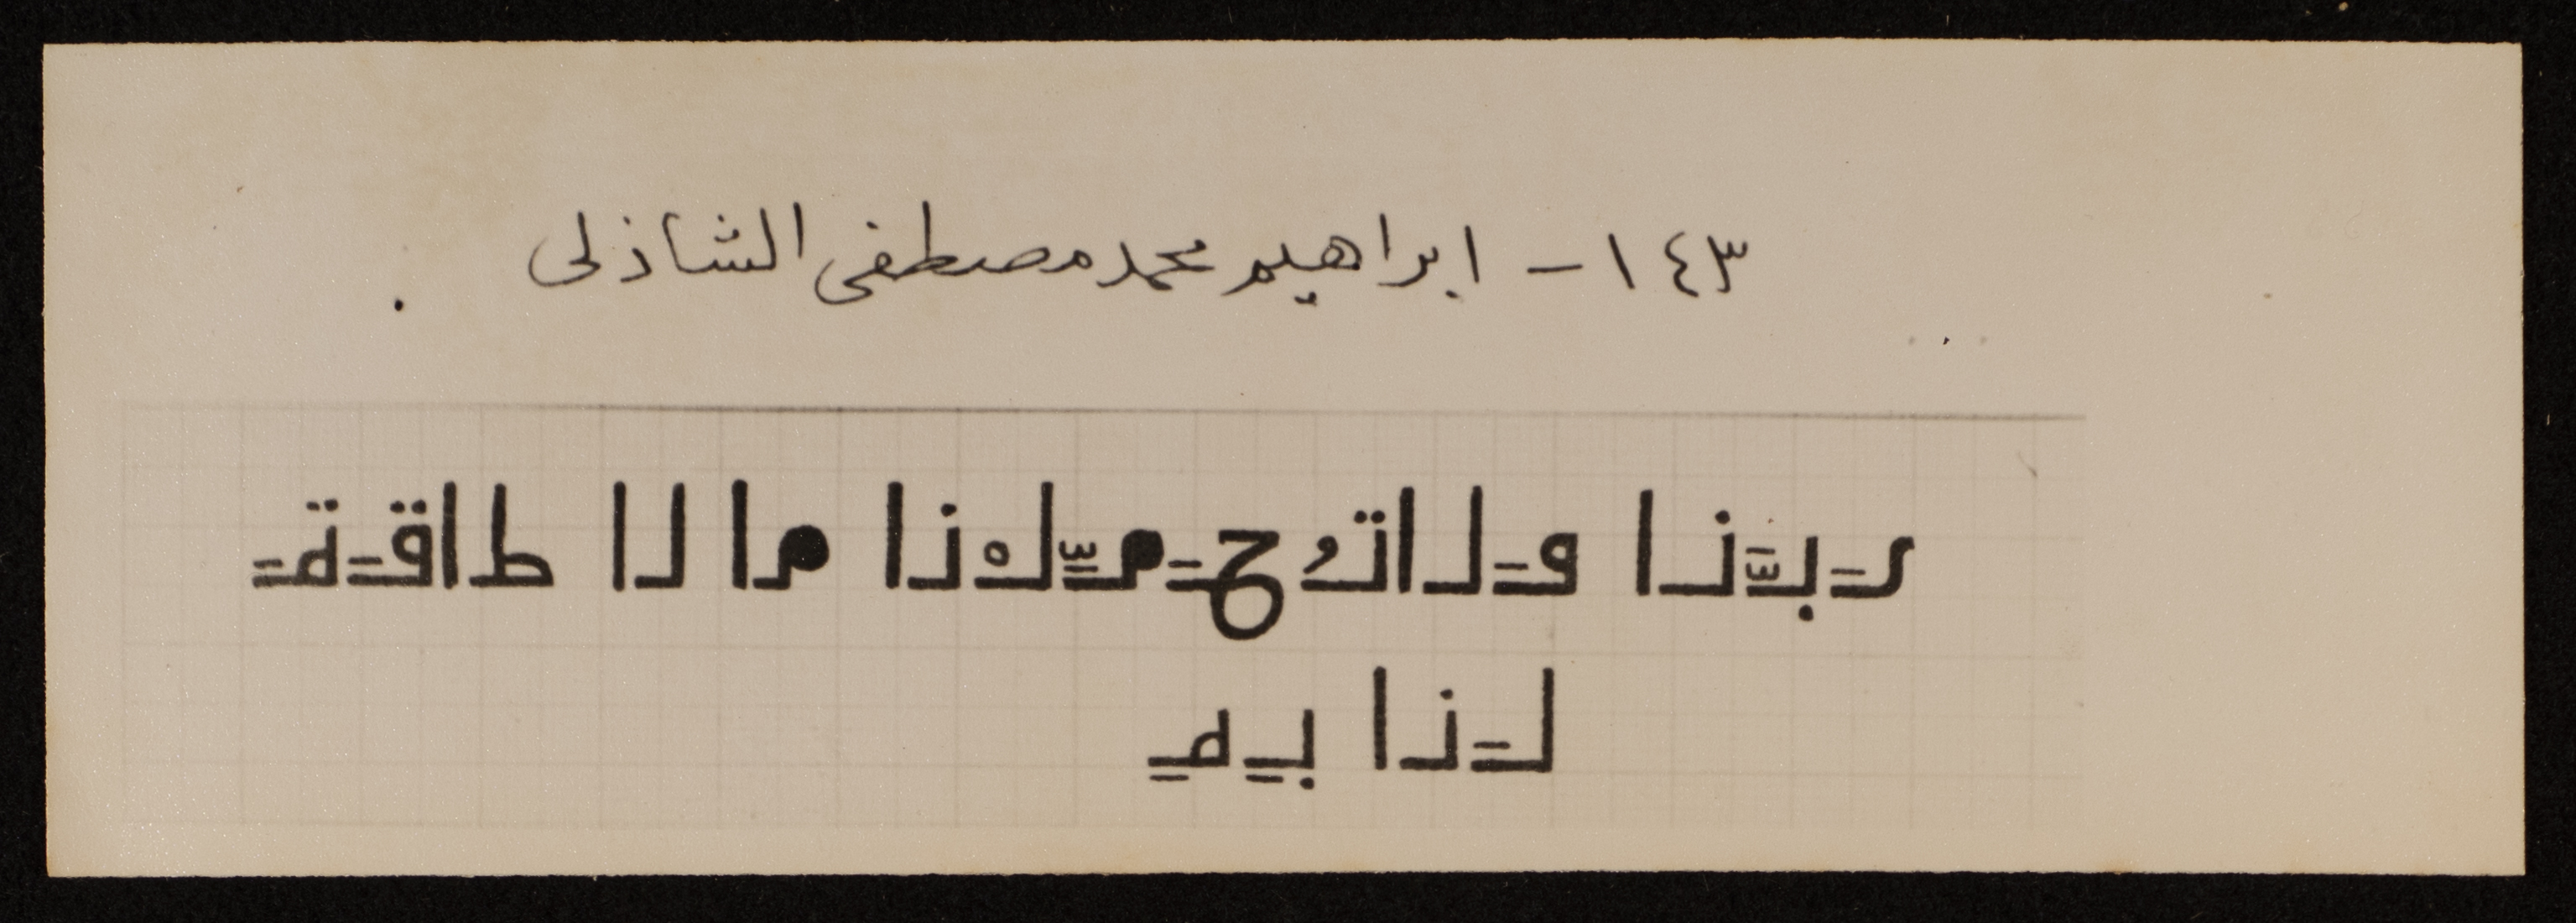 ١٤٣- ابراهيم محمد مصطفى الشاذلى
رَبَّنا وَلاتُحَمِّلْنا ما لا طاقَةَ
لَنا بِهِ